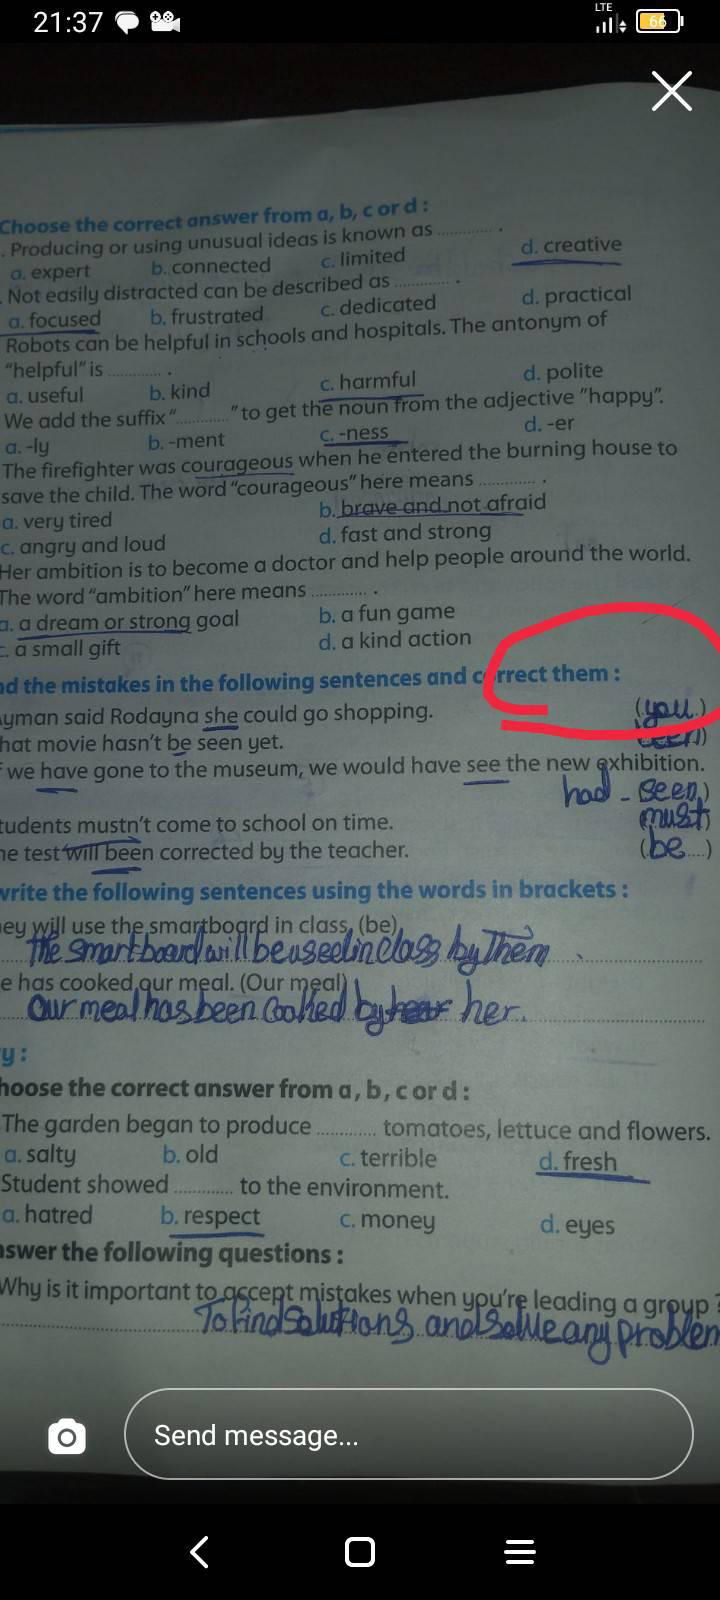 21:37
LTE
66
Choose the correct answer from a, b, c or d :
. Producing or using unusual ideas is known as ............ .
a. expert b. connected c. limited d. creative
. Not easily distracted can be described as ............ .
a. focused b. frustrated c. dedicated d. practical
Robots can be helpful in schools and hospitals. The antonym of
"helpful" is ............ .
a. useful b. kind c. harmful d. polite
We add the suffix "............" to get the noun from the adjective "happy".
a. -ly b. -ment c. -ness d. -er
The firefighter was courageous when he entered the burning house to
save the child. The word "courageous" here means ............ .
a. very tired b. brave and not afraid
c. angry and loud d. fast and strong
Her ambition is to become a doctor and help people around the world.
The word "ambition" here means ............ .
a. a dream or strong goal b. a fun game
c. a small gift d. a kind action
nd the mistakes in the following sentences and correct them :
yman said Rodayna she could go shopping. (you.)
hat movie hasn't be seen yet. (been)
f we have gone to the museum, we would have see the new exhibition.
had - (seen.)
tudents mustn't come to school on time. (must)
he test will been corrected by the teacher. (be....)
write the following sentences using the words in brackets :
ey will use the smartboard in class. (be)
the smart board will be used in class by them .
e has cooked our meal. (Our meal)
Our meal has been cooked by her.
y :
hoose the correct answer from a, b, c or d :
The garden began to produce ............ tomatoes, lettuce and flowers.
a. salty b. old c. terrible d. fresh
Student showed ............ to the environment.
a. hatred b. respect c. money d. eyes
nswer the following questions :
Why is it important to accept mistakes when you're leading a group ?
To find solutions and solve any problem
Send message...